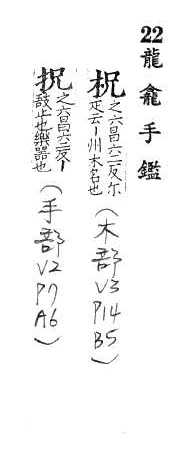 22 龍龕手鑑
柷 之六昌六二反尔
疋云丨州木名也
(木部 V3 P14 B5)
柷 之六昌六二反丨
敔止也樂器也
(手部 V2 P7 A6)